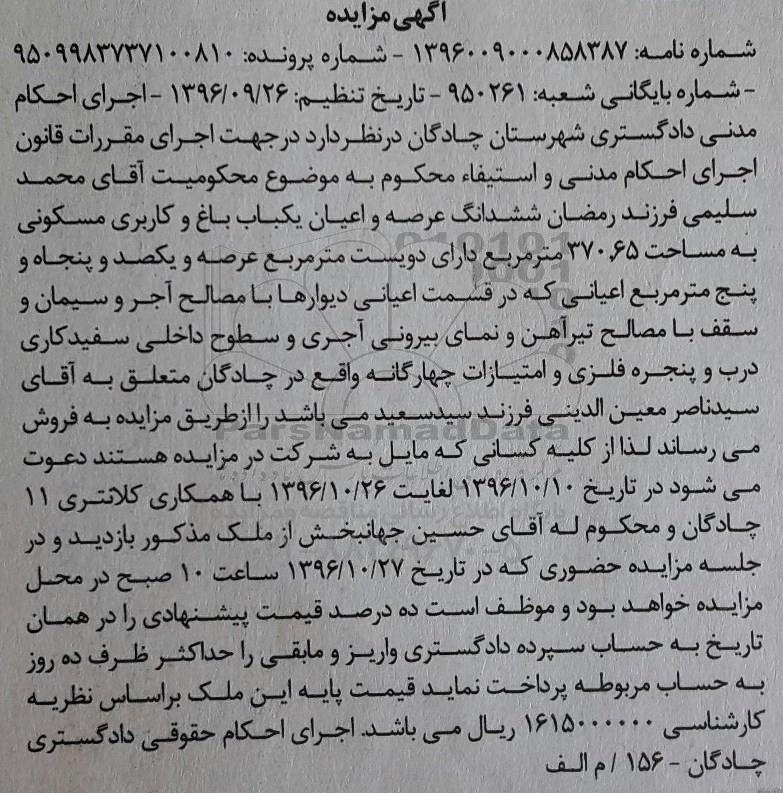 آگهی مزایده
شماره نامه: ۱۳۹۶۰۰۹۰۰۰۸۵۸۳۸۷ - شماره پرونده: ۹۵۰۹۹۸۳۷۳۷۱۰۰۸۱۰
- شماره بایگانی شعبه: ۹۵۰۲۶۱ - تاریخ تنظیم: ۱۳۹۶/۰۹/۲۶ - اجرای احکام
مدنی دادگستری شهرستان چادگان درنظردارد درجهت اجرای مقررات قانون
اجرای احکام مدنی و استیفاء محکوم به موضوع محکومیت آقای محمد
سلیمی فرزند رمضان ششدانگ عرصه و اعیان یکباب باغ و کاربری مسکونی
به مساحت ۳۷۰,۶۵ مترمربع دارای دویست مترمربع عرصه و یکصد و پنجاه و
پنج مترمربع اعیانی که در قسمت اعیانی دیوارها با مصالح آجر و سیمان و
سقف با مصالح تیرآهن و نمای بیرونی آجری و سطوح داخلی سفیدکاری
درب و پنجره فلزی و امتیازات چهارگانه واقع در چادگان متعلق به آقای
سیدناصر معین الدینی فرزند سیدسعید می باشد را ازطریق مزایده به فروش
می رساند لذا از کلیه کسانی که مایل به شرکت در مزایده هستند دعوت
می شود در تاریخ ۱۳۹۶/۱۰/۱۰ لغایت ۱۳۹۶/۱۰/۲۶ با همکاری کلانتری ۱۱
چادگان و محکوم له آقای حسین جهانبخش از ملک مذکور بازدید و در
جلسه مزایده حضوری که در تاریخ ۱۳۹۶/۱۰/۲۷ ساعت ۱۰ صبح در محل
مزایده خواهد بود و موظف است ده درصد قیمت پیشنهادی را در همان
تاریخ به حساب سپرده دادگستری واریز و مابقی را حداکثر ظرف ده روز
به حساب مربوطه پرداخت نماید قیمت پایه این ملک براساس نظریه
کارشناسی ۱۶۱۵۰۰۰۰۰۰ ریال می باشد. اجرای احکام حقوقی دادگستری
چادگان - ۱۵۶ / م الف
ParsNamadData